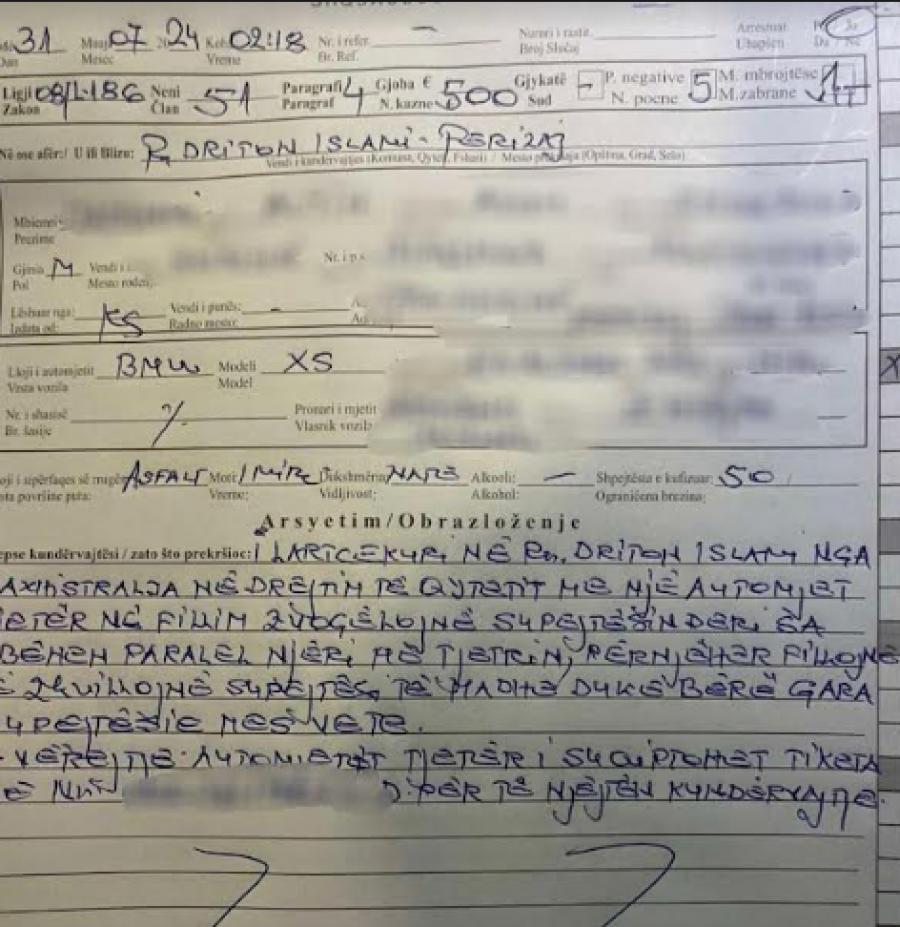 31 Muaj 07 24 Koh 02:18 Nr. i refer. — Numri i rastit: Arrestuar
Dan Mesec Vreme Br. Ref. Broj Slučaj Uhapšen Da / Ne
Ligji 08/L-186 Neni 51 Paragrafi 4 Gjoba € 500 Gjykatë - P. negative 5 M. mbrojtëse
Zakon Član Paragraf N. kazne Sud N. poene M.zabrane
Në ose afër:/ U ili Blizu: Rr. DRITON ISLAMI - FERIZAJ
Vendi i kundërvajtjes (Komuna, Qyteti, Fshati) / Mesto (Opština, Grad, Selo)
Mbiemri
Prezime
Gjinia M Vendi i Nr. i p.
Pol Mesto rođen.
Lëshuar nga: KS Vendi i punës: -
Izdata od: Radno mesto:
Lloji i automjetit BMW Modeli X5
Vrsta vozila Model
Nr. i shasisë Pronari i mjetit
Br. šasije Vlasnik vozila
oji i sipërfaqes së rrugës ASFALT Moti / MIRË Dukshmëria NATË Alkooli: — Shpejtësia e kufizuar: 50
sta površine puta: Vreme: Vidljivost: Alkohol: Ograničena brzina:
Arsyetim/Obrazloženje
epse kundërvajtësi / zato što prekršioc: I LARTCEKUR, NË Rr. DRITON ISLAMI NGA
MAGJISTRALJA NË DREJTIM TË QYTETIT ME NJË AUTOMJET
JETËR NË FILLIM ZVOGËLOJNË SHPEJTËSIN DERI SA
BËHEN PARALEL NJËRI ME TJETRIN, PËRNJËHER FILLOJNË
TË ZHVILLOJNË SHPEJTËSI TË MADHE DUKE BËRË GARA
HPEJTËSIE MES VETE.
VËREJTJE: AUTOMJETIT TJETËR I SHQIPTOHET TIKETA
ME NUM PËR TË NJEJTËN KUNDËRVAJTJE.